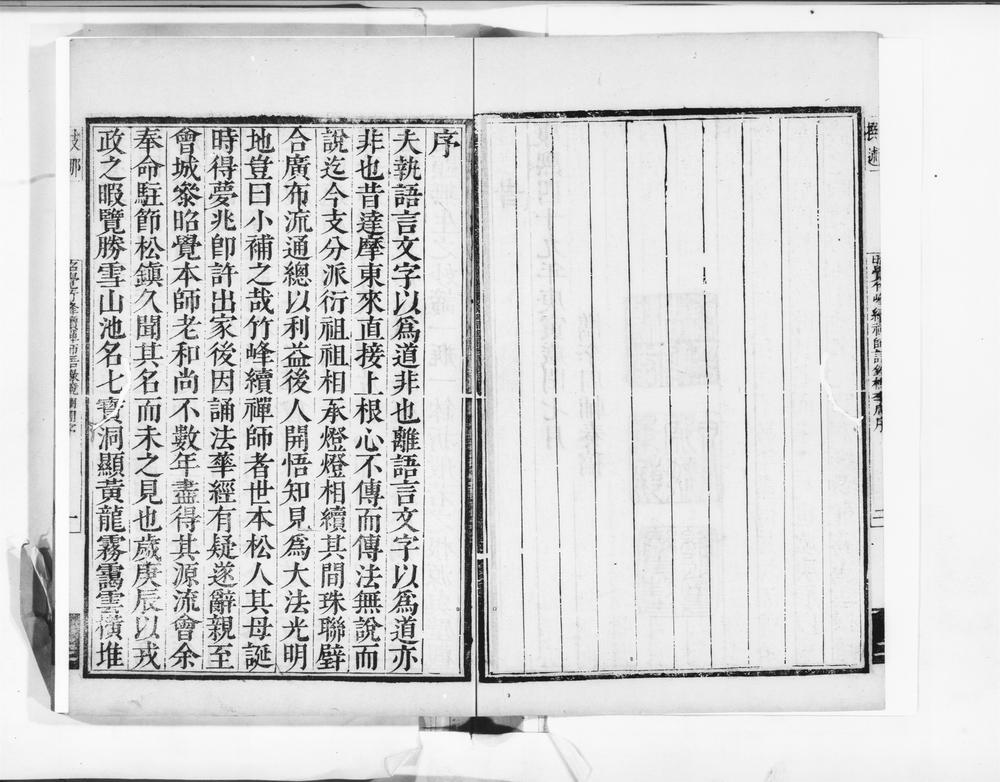 撰述
序
夫執語言文字以爲道非也離語言文字以爲道亦
非也昔達摩東來直接上根心不傳而傳法無說而
說迄今支分派衍祖祖相承燈燈相續其間珠聯璧
合廣布流通總以利益後人開悟知見爲大法光明
地豈曰小補之哉竹峰續禪師者世本松人其母誕
時得夢兆卽許出家後因誦法華經有疑遂辭親至
會城叅昭覺本師老和尚不數年盡得其源流會余
奉命駐節松鎭久聞其名而未之見也歲庚辰以戎
政之暇覽勝雪山池名七寳洞顯黃龍霧靄雲橫堆